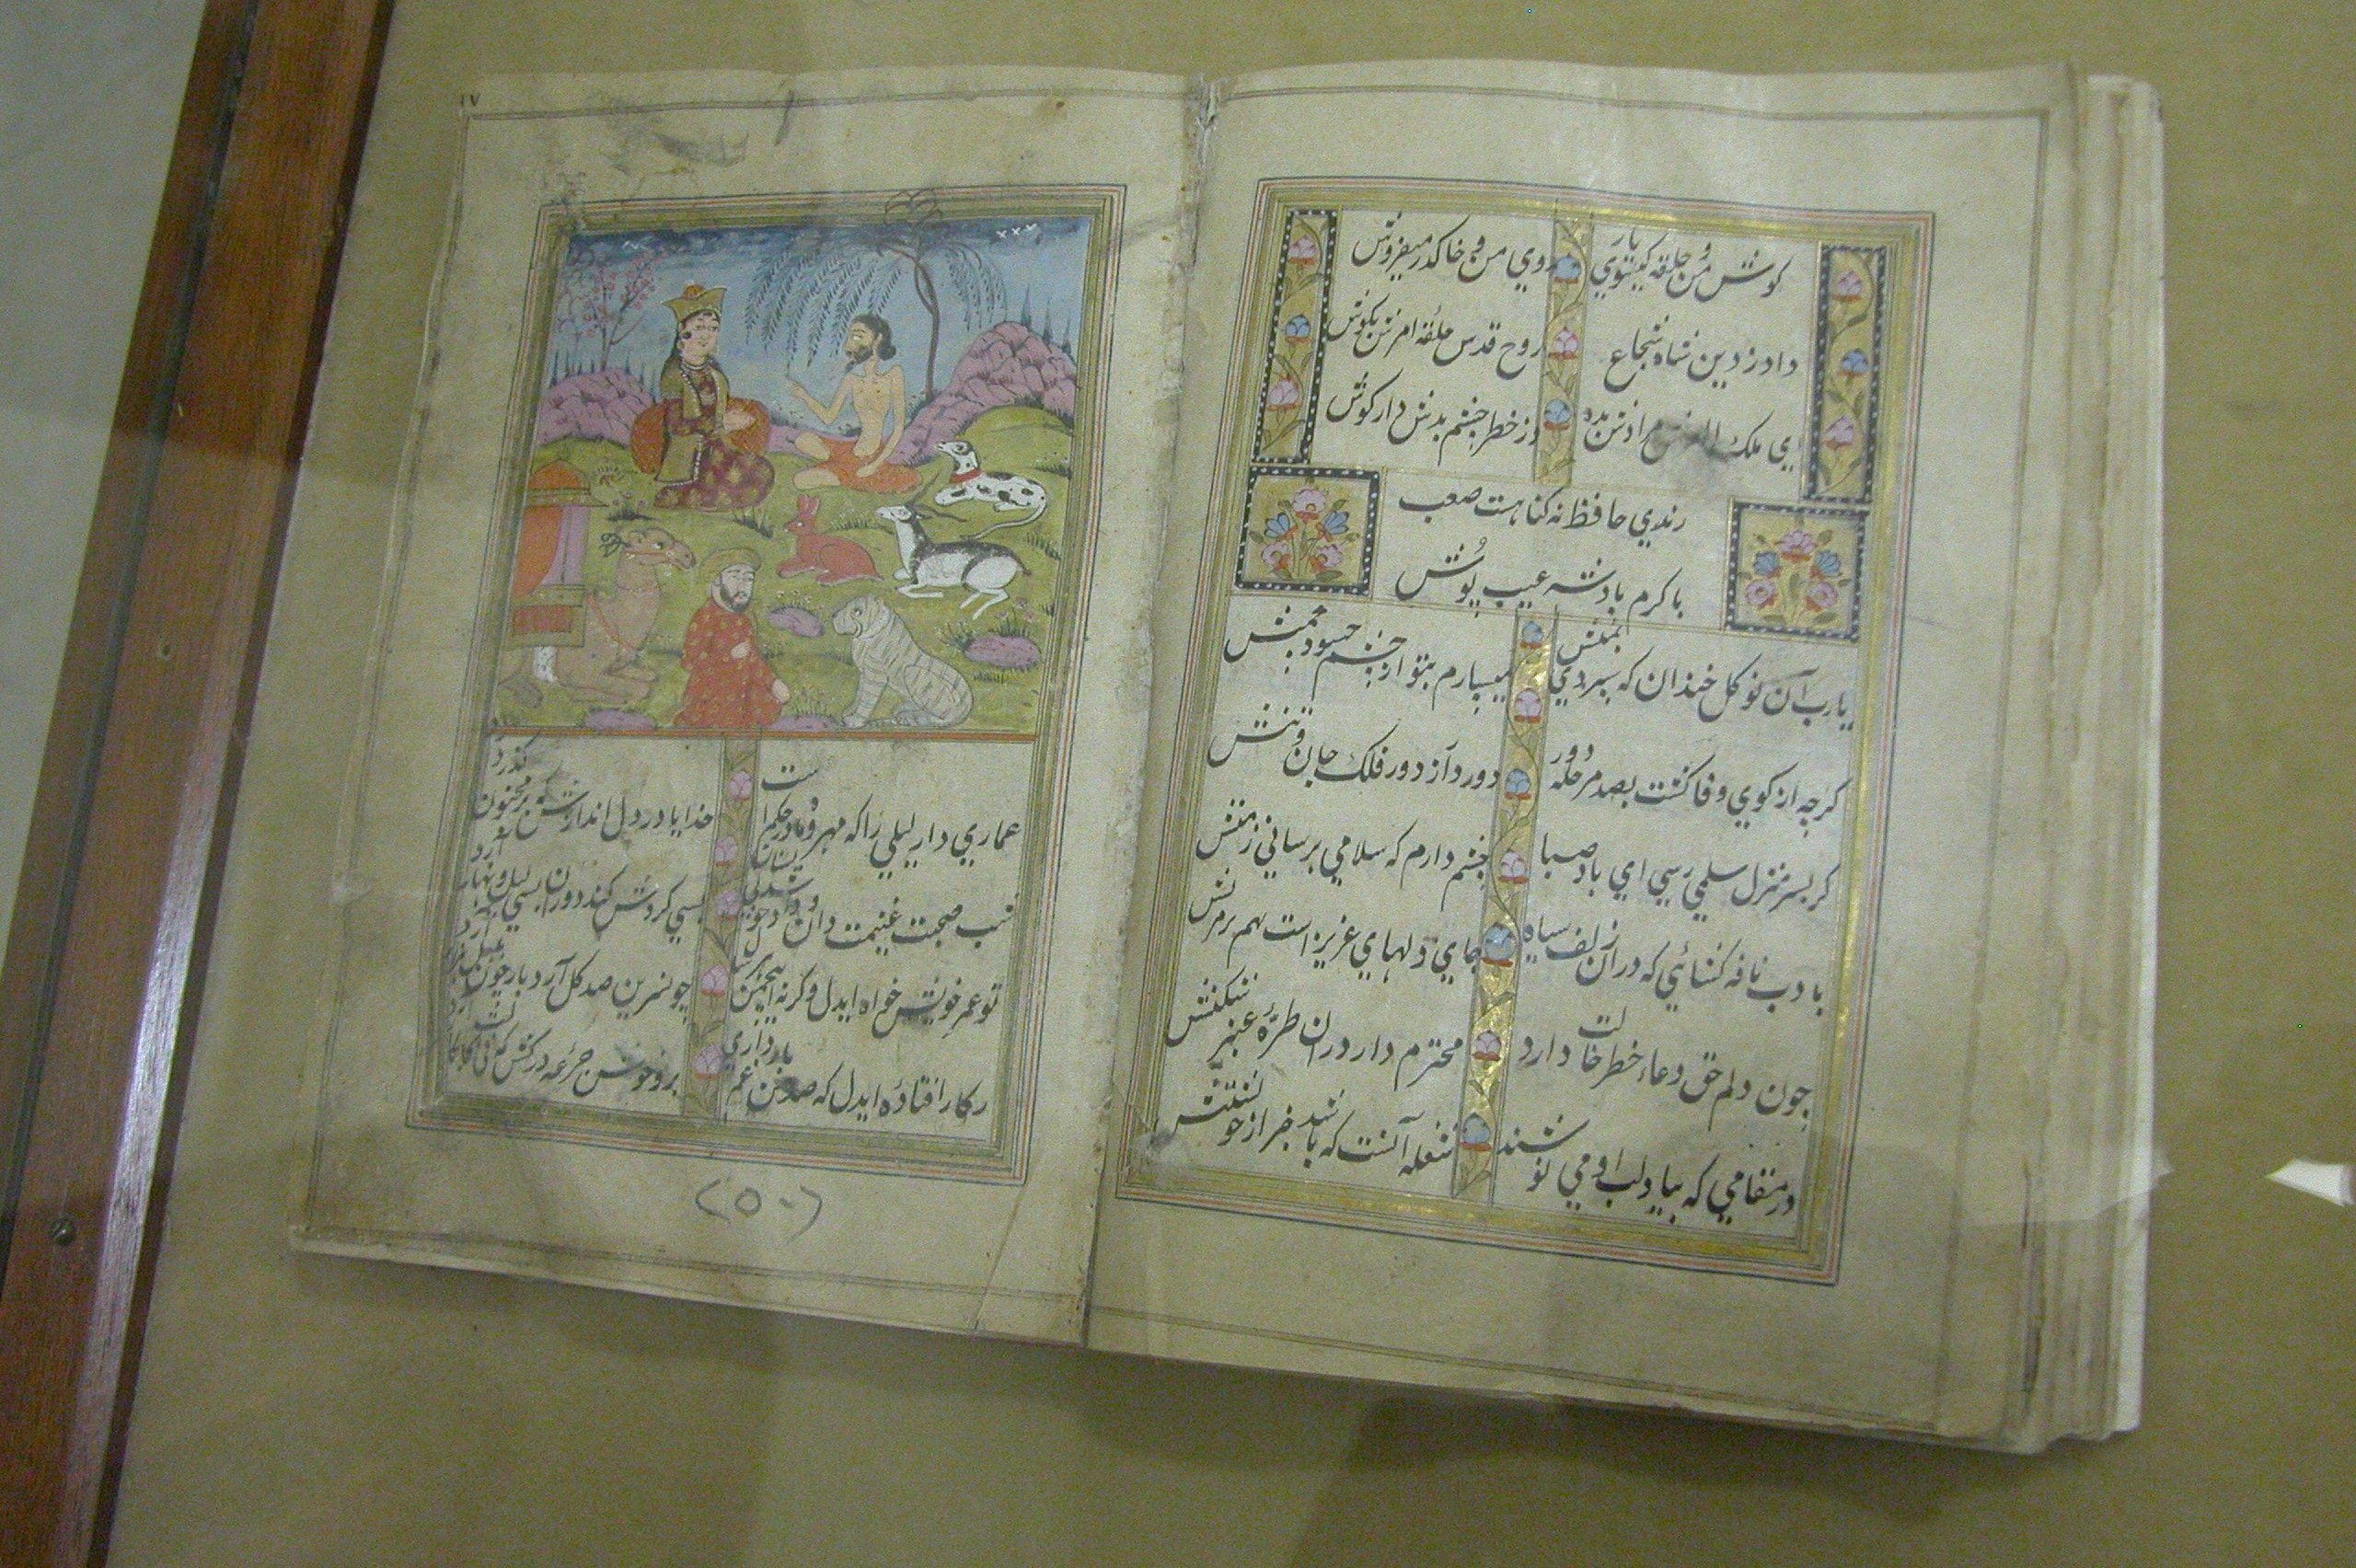 کوش من و حلقه کیسوي یار
روي من و خاک در میفروش
داور دین شاه شجاع
روح قدس حلقه امرش بکوش
اي ملک مرادش بده
وز خطر چشم بدش دار کوش
رندي حافظ نه کناهست صعب
با کرم پادشه عیب پوش
یارب آن نو کل خندان که سپردي بمنش
میسپارم بتو از چشم حسود چمنش
کرچه از کوي وفا کشت بصد مرحله دور
دور باد از دور فلک جان و تنش
کر بسر منزل سلمي رسي اي باد صبا
چشم دارم که سلامي برساني ز منش
بادب نافه کشائي که دران زلف سیاه
جاي دلهاي عزیز است بهم برمزنش
چون دلم حق دعاء خط و خالت دارد
محترم دار دران طره عنبر شکنش
در مقامي که بیاد لب او مي نوشند
سفله آنست که باشد خبر از خویشتنش
١٧
عماري دار لیلي را که مهر و ماه در حکم است
خدایا در دل اندازش که بر مجنون کذر آرد
شب صحبت غنیمت دان
بسي کردش کند دوران بسي لیل و نهار آرد
تو عمر خویش خواه ایدل وکرنه این چمن هر سال
چو نسرین صد کل آرد بار و چون بلبل هزار آرد
ز کار افتاده ایدل که صد من غم بار داري
برو خوش جرعه درکش
(٥٠)